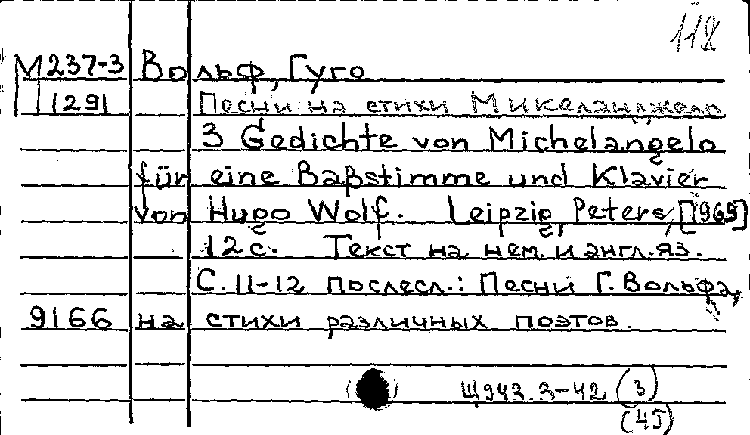 118
М237-3 Вольф, Гуго
1291 Песни на стихи Микеланджело
3 Gedichte von Michelangelo
für eine Baßstimme und Klavier
von Hugo Wolf. Leipzig, Peters, [1965]
12 с. Текст на нем. и англ. яз.
С. 11-12 послесл.: Песни Г. Вольфа
9166 на стихи различных поэтов.
Щ943.3-42 (3)
(45)